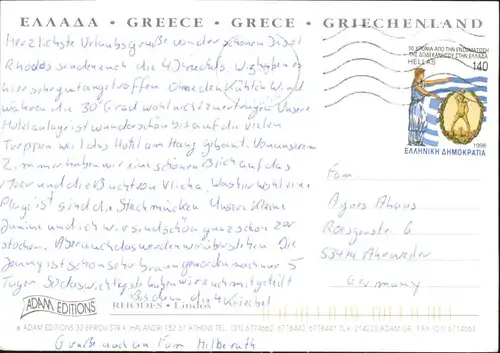 ΕΛΛΑΔΑ • GREECE • GRECE • GRIECHENLAND
Herzlichste Urlaubsgrüße von der schönen Insel
Rhodos senden euch die 4 Wir haben es
hier sehr gut angetroffen. Ohne den kühlen Wind
wären die 30° Grad wohl nicht zu ertragen. Unsere
Hotelanlage ist wunderschön bis auf die vielen
Treppen weil das Hotel am Hang gebaut. Von unserem
Zimmer haben wir eine schönen Blick auf das
Meer und die Bucht von Vlicha. Was hier wohl eine
Plage ist sind die Stechmücken. Unsere kleine
Janine und ich wir sind schon ganz schön zer
stochen. Aber auch das werden wir überstehen. Die
Jenny ist schon sehr braun geworden nach nur 5
Tagen. So das wichtigste haben wir euch mitgeteilt
Bis dann, die 4
ADAM EDITIONS
RHODES • Lindos
ADAM EDITIONS 32 STR. HALANDRI 152 31 ATHENS TEL. (01) 6774662, 6778440, 6778441 TLX-214223 ADAM GR. FAX. (01)
Grüße auch an Fam Hilberath
50 ΧΡΟΝΙΑ ΑΠΟ ΤΗΝ ΕΝΣΩΜΑΤΩΣΗ
ΤΗΣ ΔΩΔΕΚΑΝΗΣΟΥ ΣΤΗΝ ΕΛΛΑΔΑ
HELLAS 140
1998
ΕΛΛΗΝΙΚΗ ΔΗΜΟΚΡΑΤΙΑ
Fam
Agnes Ahaus
6
53474 Ahrweiler
Germany